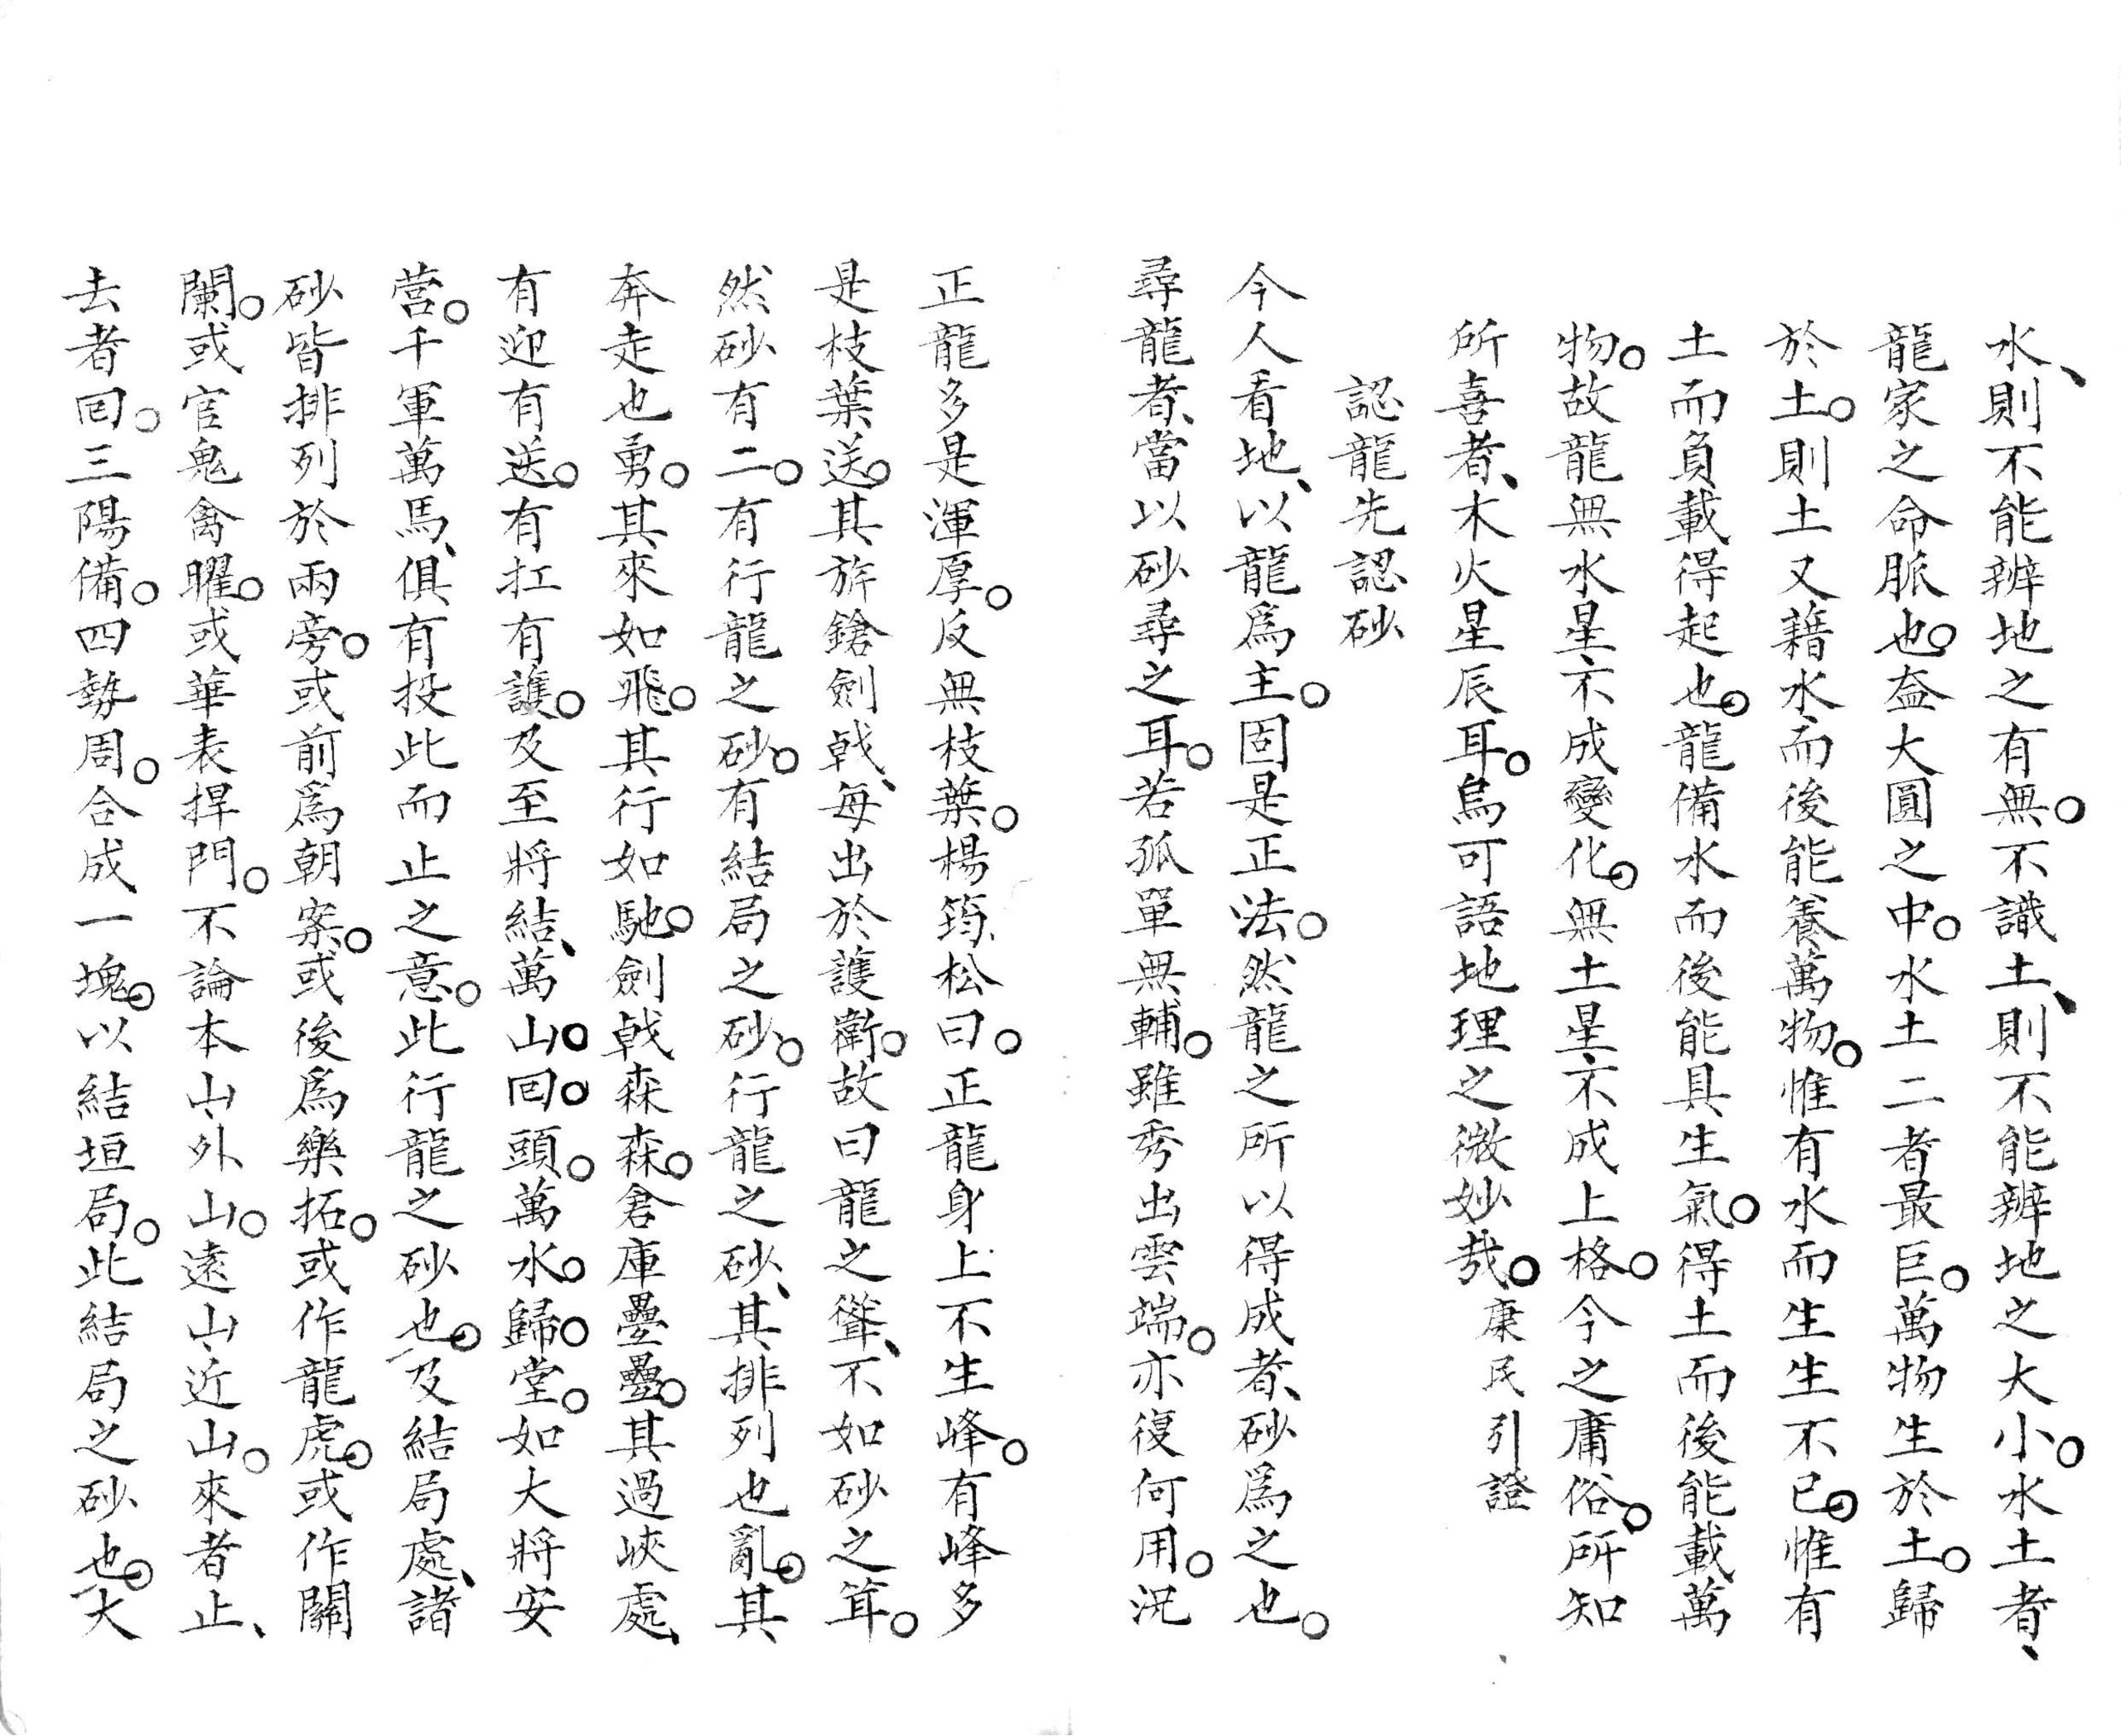 水、則不能辨地之有無。不識土、則不能辨地之大小。水土者、
龍家之命脈也。盖大圓之中。水土二者最巨。萬物生於土。歸
於土。則土又藉水而後能養萬物。惟有水而生生不已。惟有
土而負載得起也。龍備水而後能具生氣。得土而後能載萬
物。故龍無水星、不成變化。無土星、不成上格。今之庸俗。所知
所喜者、木火星辰耳。烏可語地理之微妙哉。康民引證
認龍先認砂
今人看地、以龍爲主。固是正法。然龍之所以得成者、砂爲之也。
尋龍者、當以砂尋之耳。若孤單無輔。雖秀出雲端。亦復何用。況
正龍多是渾厚。反無枝葉。楊筠松曰。正龍身上不生峰。有峰多
是枝葉送。其旂鎗劍戟、每出於護衛。故曰龍之聳、不如砂之耸。
然砂有二。有行龍之砂。有結局之砂。行龍之砂、其排列也亂。其
奔走也勇。其來如飛。其行如馳。劍戟森森。倉庫疊疊。其過峽處、
有迎有送。有扛有護。及至將結、萬山。回。頭。萬水。歸。堂。如大將安
營。千軍萬馬、俱有投此而止之意。此行龍之砂也。及結局處、諸
砂皆排列於兩旁。或前爲朝案。或後爲樂拓。或作龍虎。或作關
闌。或官鬼禽曜。或華表捍門。不論本山、外山。遠山、近山。來者止、
去者回。三陽備。四勢周。合成一塊。以結垣局。此結局之砂也。大